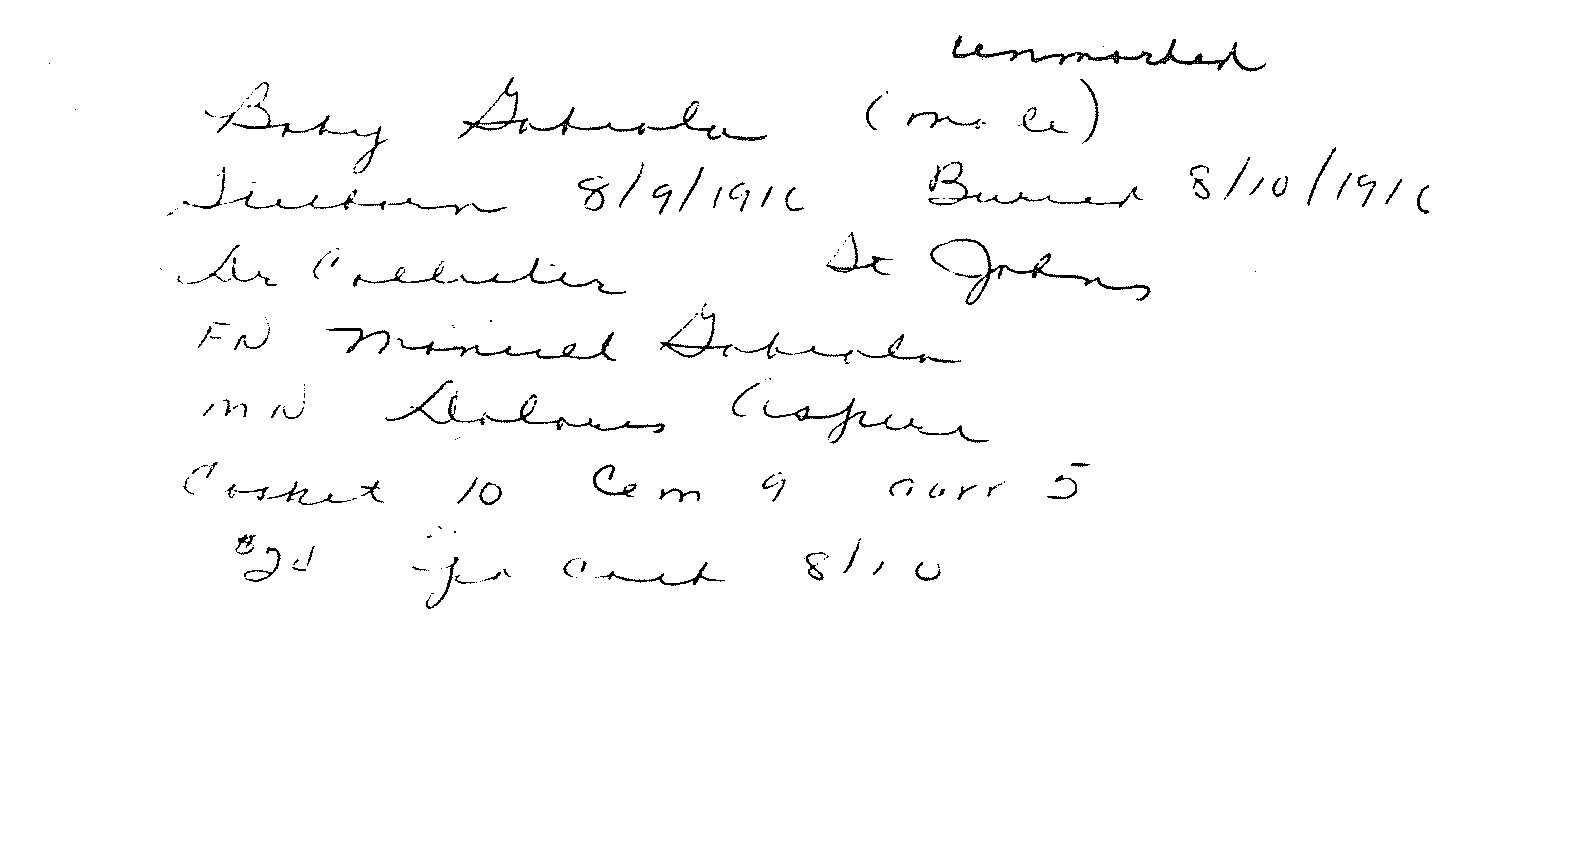 unmarked
Baby Gabriola (male)
Stillborn 8/9/1916 Buried 8/10/1916
Dr St Johns
FN Manuel Gabriola
MN Dolores
Casket 10 Cem 9 5
8/10